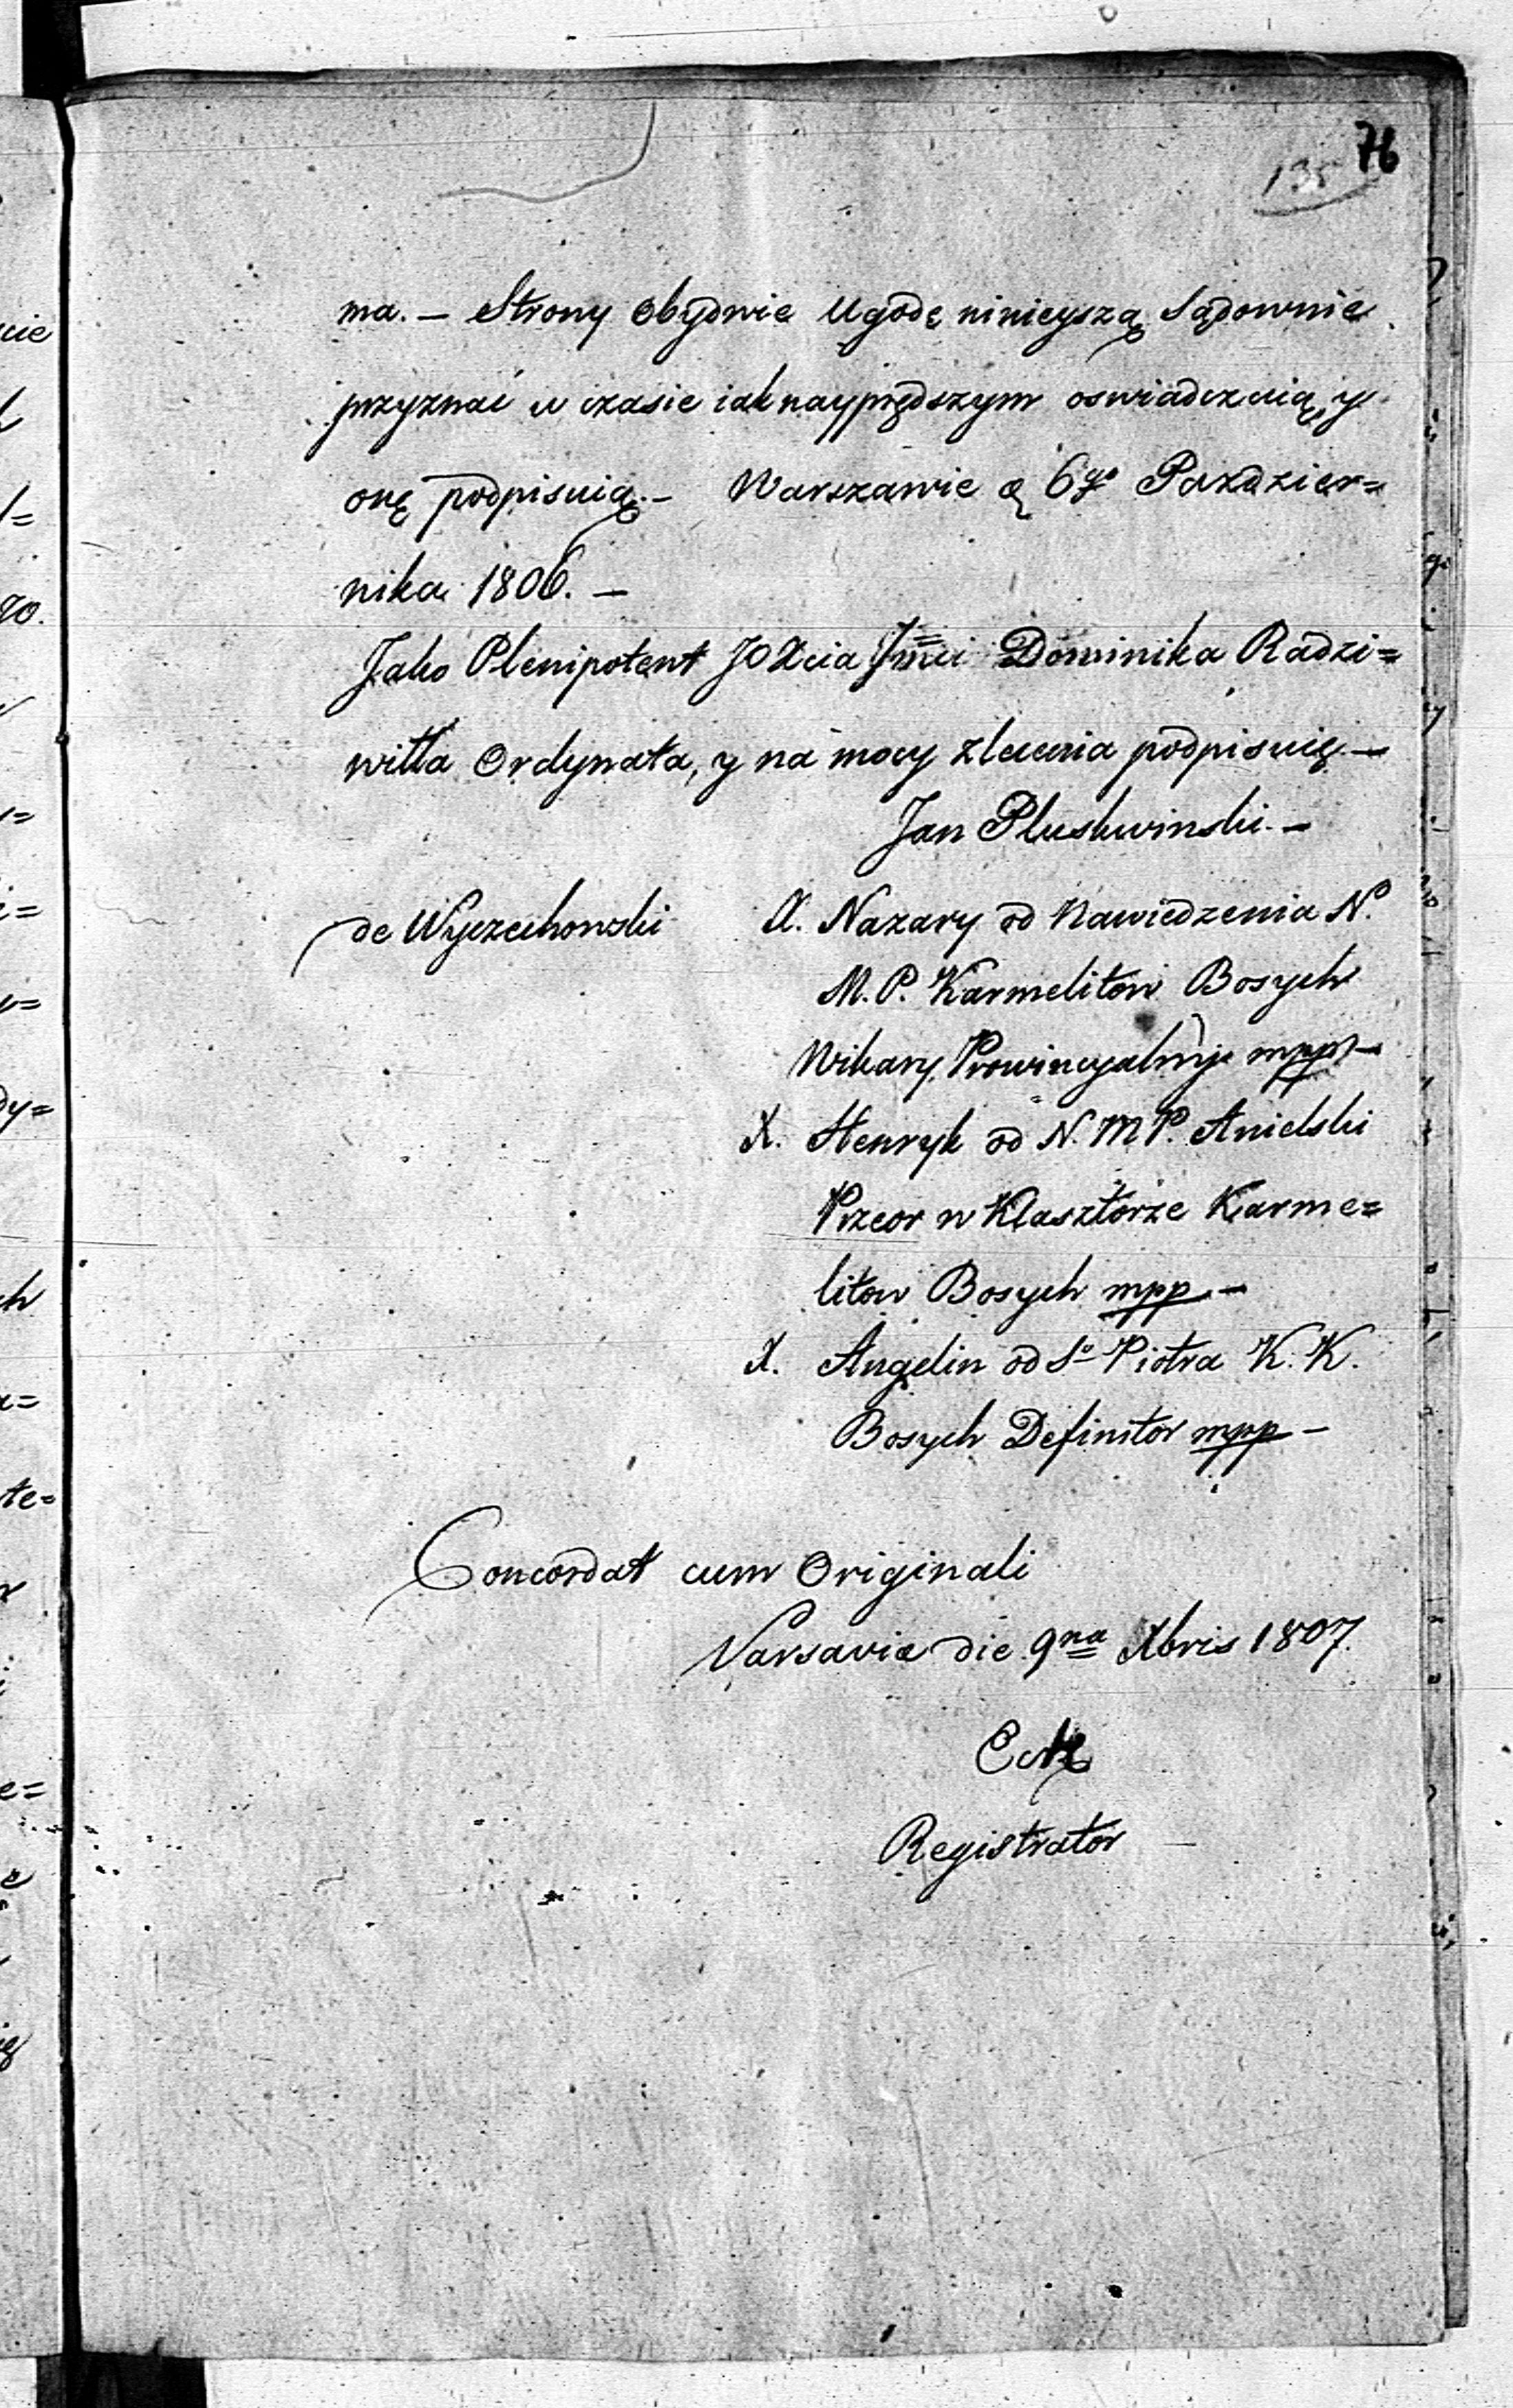 76
135
ma. — Strony obydwie Ugodę ninieyszą Sądownie
przyznać w czasie iaknayprędszym oswiadczaią y
onę podpisuią. — Warszawie d 6go Pazdzier=
nika 1806. —
Jako Plenipotent JOXcia Jmci Dominika Radzi=
wiłła Ordynata, y na mocy zlecenia podpisuię —
Jan Pluskwinski. —
de Wyczechowski X. Nazary od Nawiedzenia N.
M. P. Karmelitow Bosych
Wikary Prowincyalny mpp —
X. Henryk od N. M P. Anielski
Przeor w Klasztorze Karme=
litow Bosych mpp —
X. Angelin od So Piotra K. K.
Bosych Definitor mpp —
Concordat cum Originali
Varsaviæ die 9na Xbris 1807.
Registrator